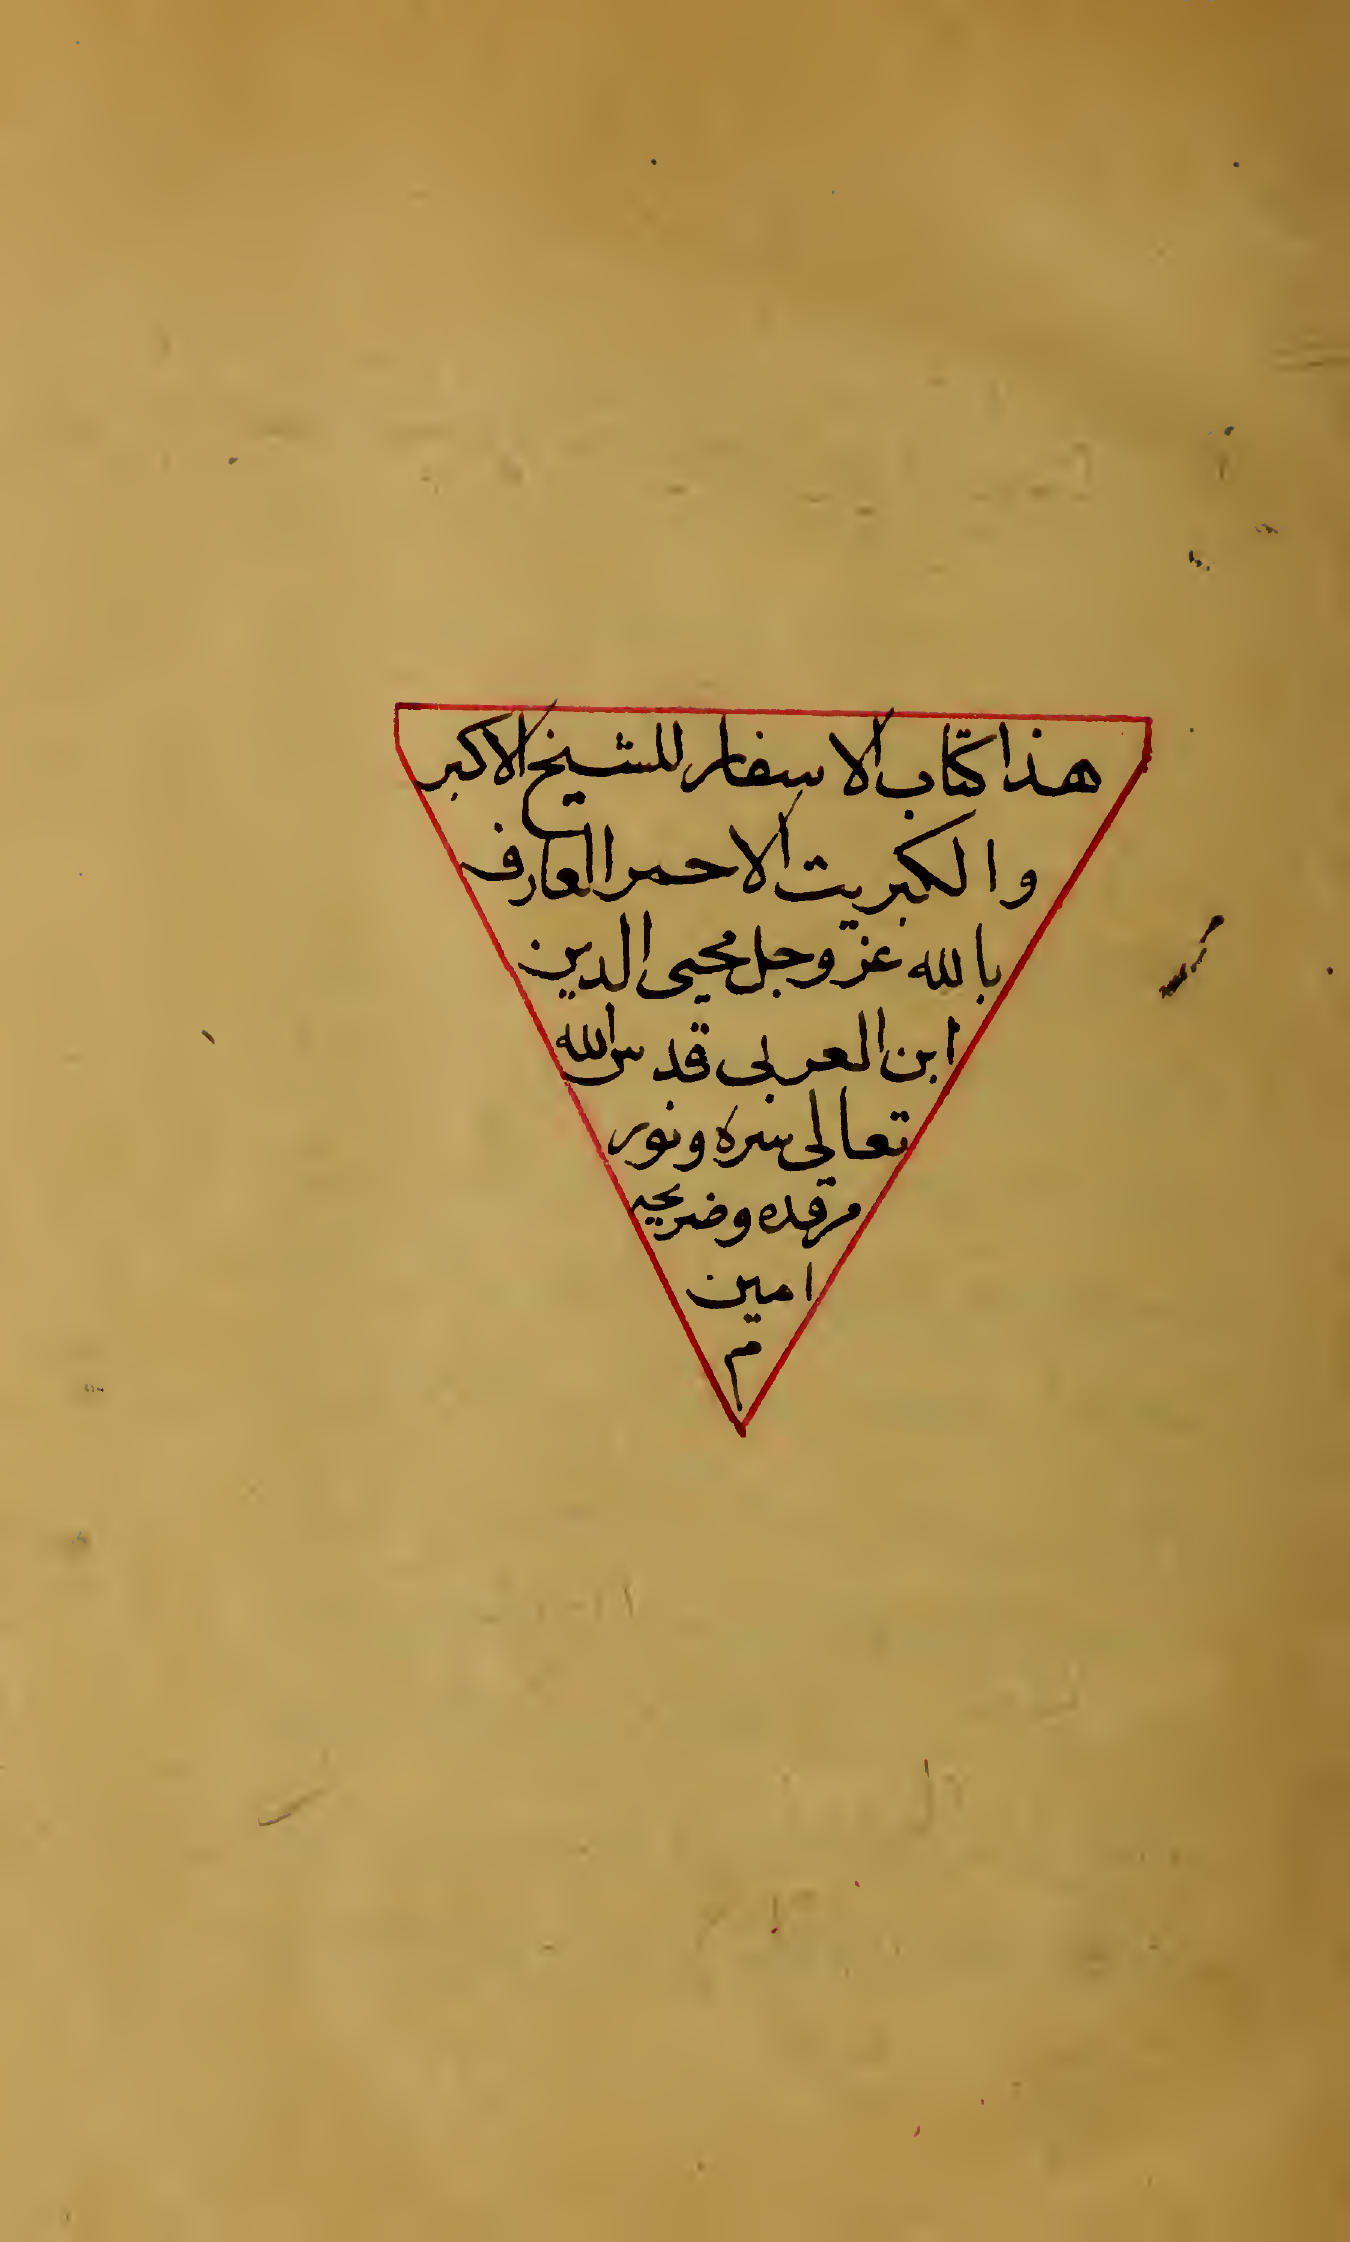 هذا كتاب الاسفار للشيخ الاكبر
والكبريت الاحمر العارف
بالله عز وجل محيى الدين
ابن العربى قدس الله
تعالى سره ونور
مرقده وضريحه
امين
م